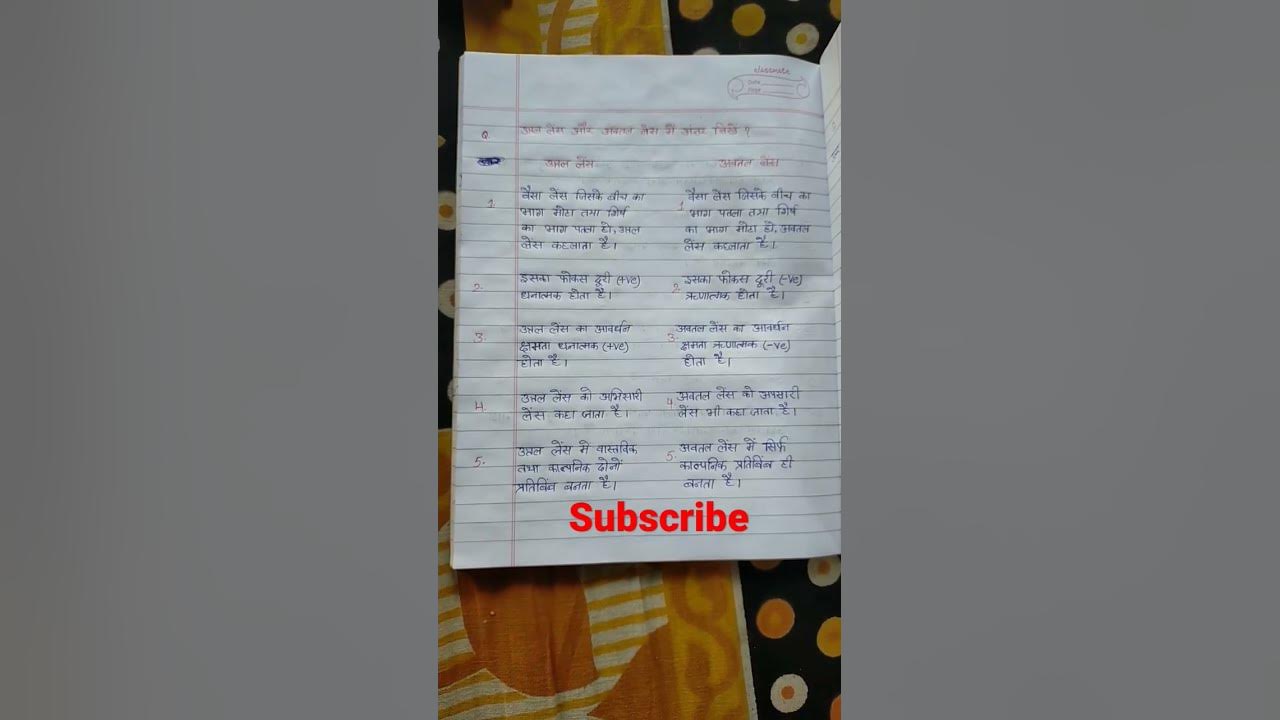 classmate
Date
Page
Q. उत्तल लेंस और अवतल लेंस में अंतर लिखें ?
उत्तल लेंस
अवतल लेंस
1. वैसा लेंस जिसके बीच का
भाग मोटा तथा
का भाग पतला हो, उत्तल
लेंस कहलाता है।
2. इसका फोकस दूरी (+ve)
धनात्मक होता है।
3. उत्तल लेंस का आवर्धन
क्षमता धनात्मक (+ve)
होता है।
4. उत्तल लेंस को अभिसारी
लेंस कहा जाता है।
5. उत्तल लेंस में वास्तविक
तथा काल्पनिक दोनों
प्रतिबिंब बनता है।
1. वैसा लेंस जिसके बीच का
भाग पतला तथा
का भाग मोटा हो, अवतल
लेंस कहलाता है।
2. इसका फोकस दूरी (-ve)
ऋणात्मक होता है।
3. अवतल लेंस का आवर्धन
क्षमता ऋणात्मक (-ve)
होता है।
4. अवतल लेंस को अपसारी
लेंस भी कहा जाता है।
5. अवतल लेंस में सिर्फ
काल्पनिक प्रतिबिंब ही
बनता है।
Subscribe